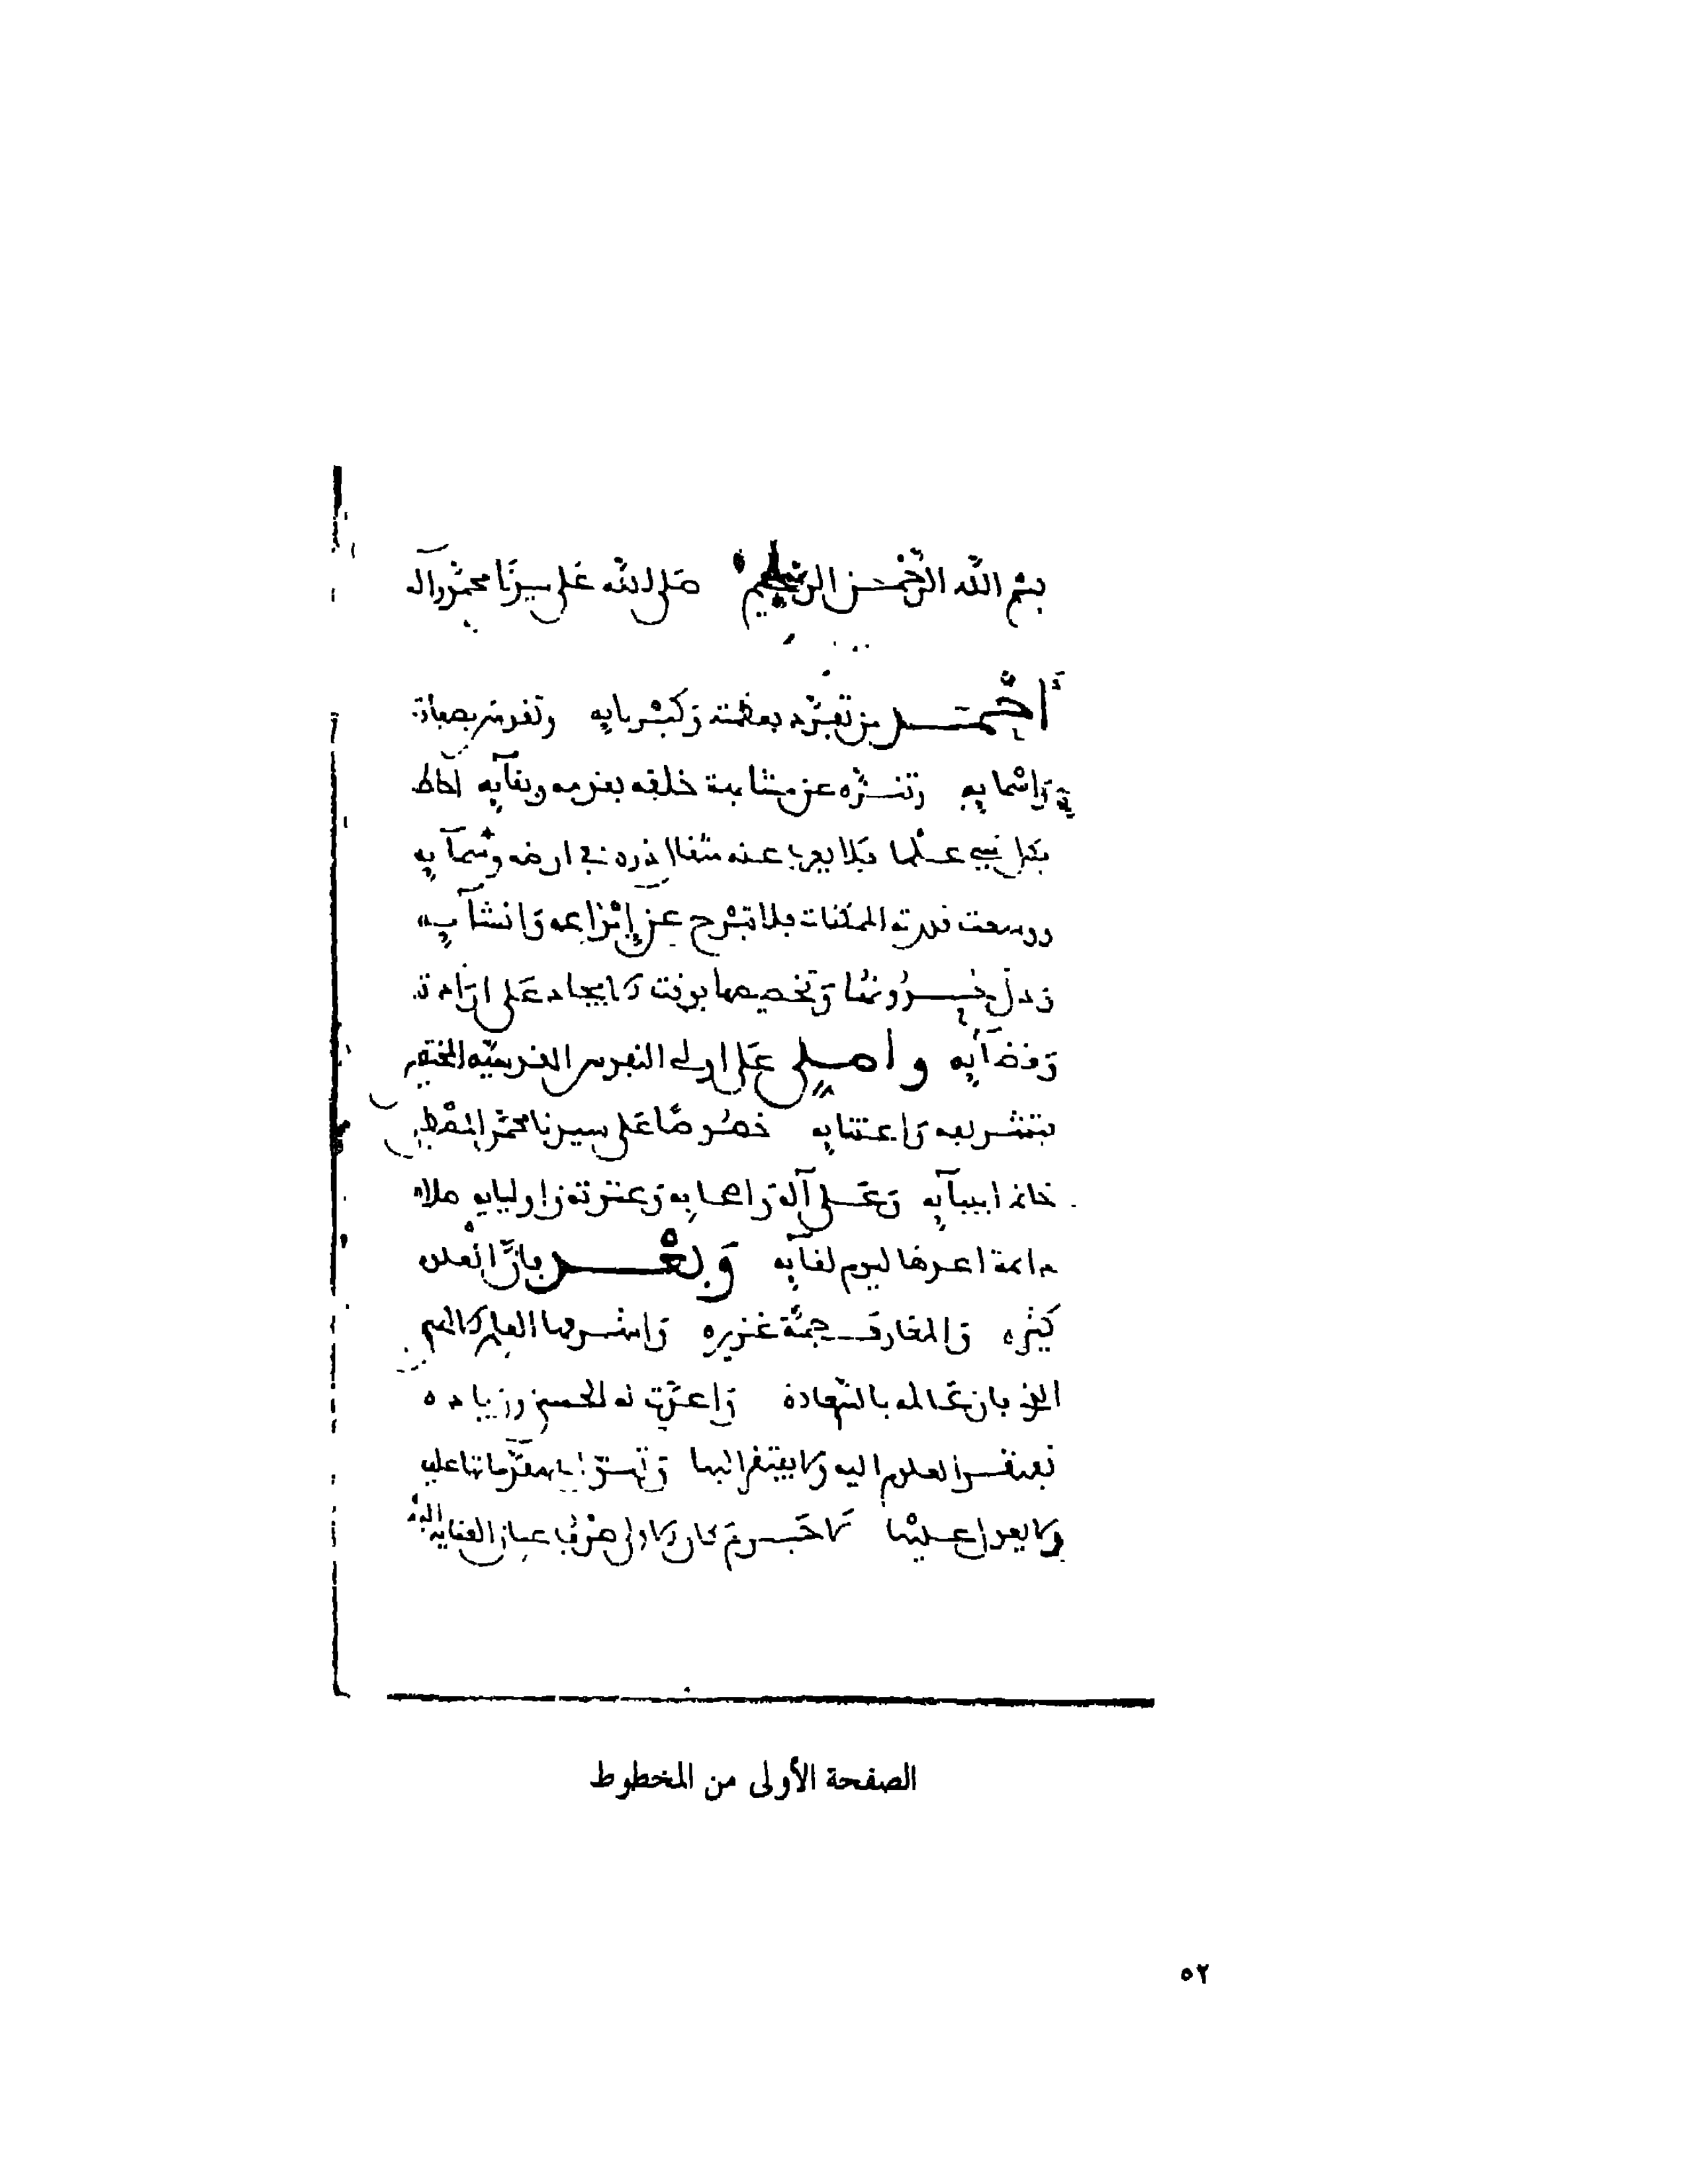 بسم الله الرحمن الرحيم صلى الله على سيدنا محمد وآله
أحمد من تفرد بعظمته وكبريايه وتقدس بصفاته
واسمايه وتنزه عن مشابهة خلقه بقدمه وبقآيه احاط
بكل شيء علما فلا يعزب عنه مثقال ذره في ارضه وسمآيه
ووسعت قدرته الممكنات فلا تبرح عن إبداعه وانشآيه
ودل حدوثها وتخصيصها بوقت الايجاد على ارادته
وقضآيه وأصلي على اولي النفوس القدسيه المختصه
بتشريفه واعتنايه خصوصا على سيدنا محمد المصطفى
خاتم انبيآيه وعلى آله واصحابه وعترته واوليايه صلاة
دايمة اعدها ليوم لقآيه وبعد فان العلوم
كثيره والمعارف جمة غزيره واشرفها العلم الالهي
الذي فاز عالمه بالسعادة واعدت له الحسنى وزياده
تفتقر العلوم اليه ولا يفتقر اليها مقدماتها عليه
ولا يعول عليها لا جرم كان الاولى صرف عنان العنايه اليه
الصفحة الأولى من المخطوط
٥٢